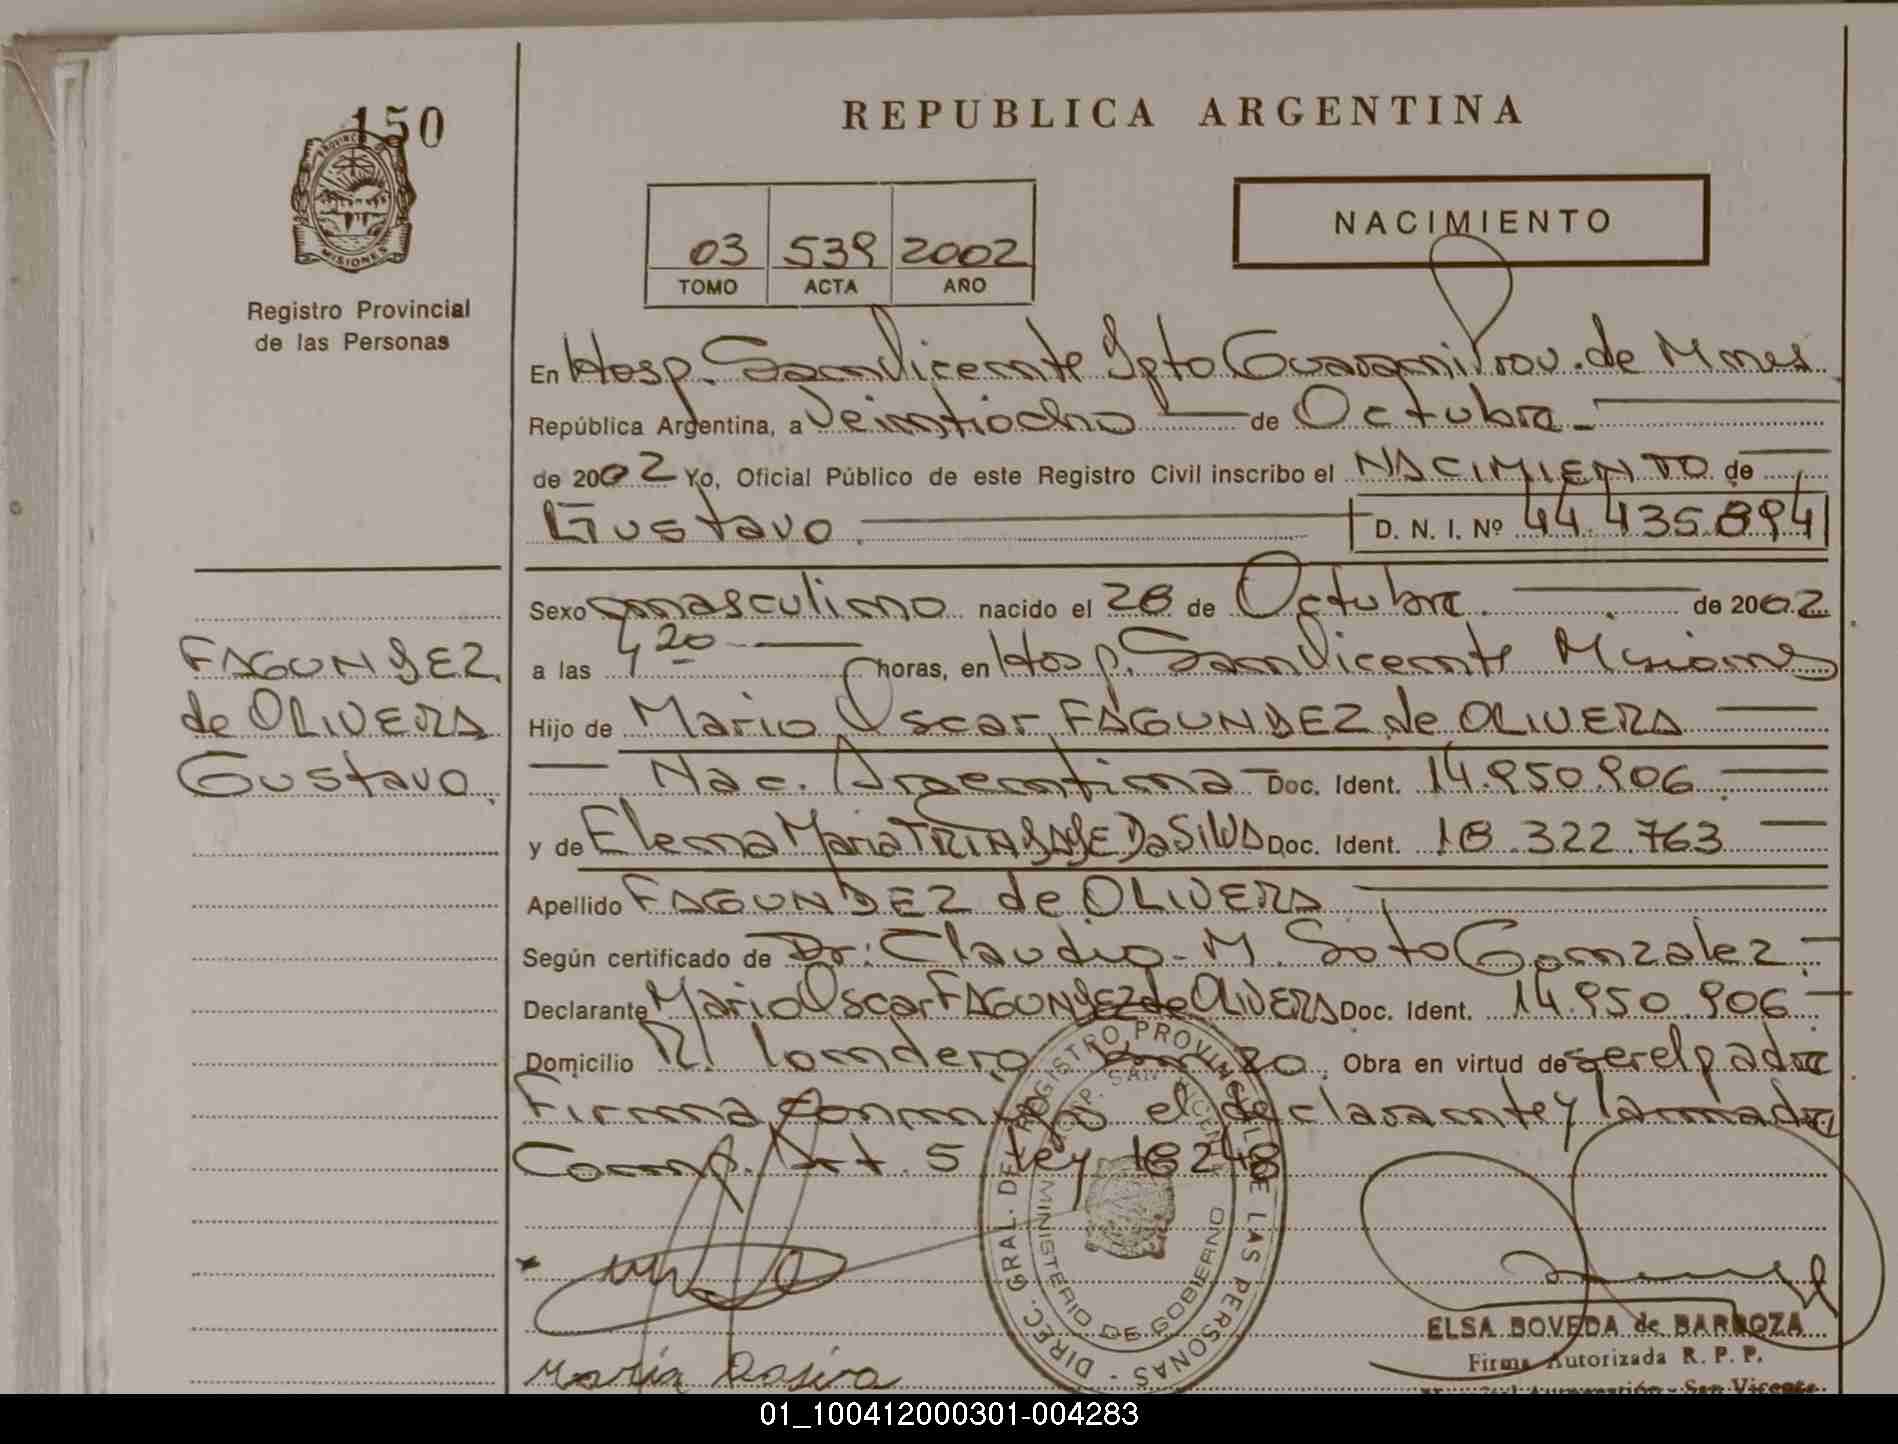 150
PROVINCIA DE
MISIONES
Registro Provincial
de las Personas
REPUBLICA ARGENTINA
03 539 2002
TOMO ACTA AÑO
NACIMIENTO
En Hosp. San Vicente Dpto Guarani Prov. de Mnes
República Argentina, a Veintiocho de Octubre
de 2002 Yo, Oficial Público de este Registro Civil inscribo el NACIMIENTO de
Gustavo D. N. I. Nº 44.435.894
Sexo masculino nacido el 28 de Octubre de 2002
a las 4,20 horas, en Hosp. San Vicente Misiones
Hijo de Mario Oscar FAGUNDEZ de OLIVERA
Nac. Argentina Doc. Ident. 14.950.906
y de Elena Maria TRINDADE Da SILVA Doc. Ident. 18.322.763
Apellido FAGUNDEZ de OLIVERA
Según certificado de Dr: Claudio M. Soto Gonzalez
Declarante Mario Oscar FAGUNDEZ de OLIVERA Doc. Ident. 14.950.906
Domicilio Obra en virtud de ser el padre
Firma conmigo el declarante y la madre
Comp. Art. 5 Ley 18248
FAGUNDEZ
de OLIVERA
Gustavo
DIREC. GRAL. DEL REGISTRO PROVINCIAL DE LAS PERSONAS
MINISTERIO DE GOBIERNO
ELSA BOVEDA de BARBOZA
Firma Autorizada R. P. P.
San Vicente
María
01_100412000301-004283